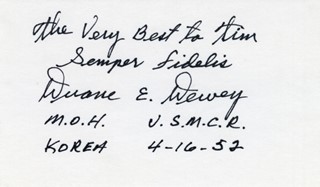 The Very Best to Tim
Semper Fidelis
Duane E. Dewey
M.O.H. U.S.M.C.R.
KOREA 4-16-52